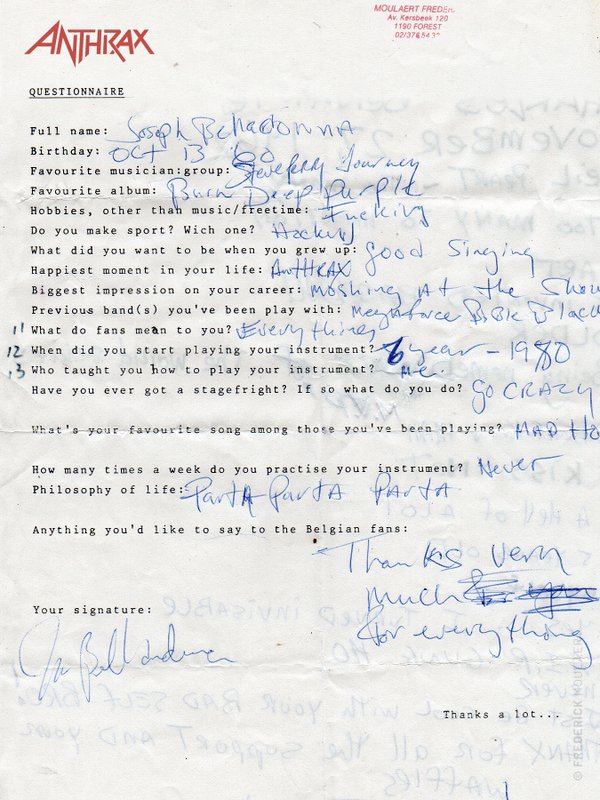 ANTHRAX
MOULAERT FREDER.
Av. Kersbeek 120
1190 FOREST
QUESTIONNAIRE
Full name: Joseph Belladonna
Birthday: Oct 13 '60
Favourite musician:group: Steve Perry Journey
Favourite album: Burn Deep Purple
Hobbies, other than music/freetime: Fucking
Do you make sport? Wich one? Hockey
What did you want to be when you grew up: good Singing
Happiest moment in your life: AnTHRAX
Biggest impression on your career: Moshing At the Show
Previous band(s) you've been play with: Megaforce Bible Black
11 What do fans mean to you? Everything
12 When did you start playing your instrument? 6 year - 1980
13 Who taught you how to play your instrument? me.
Have you ever got a stagefright? If so what do you do? GO CRAZY
What's your favourite song among those you've been playing? MAD HO
How many times a week do you practise your instrument? Never
Philosophy of life: Party Party Party
Anything you'd like to say to the Belgian fans:
Thanks very
much
for everything
Your signature:
Joe Belladonna
Thanks a lot...
© FREDERICK MOULAERT